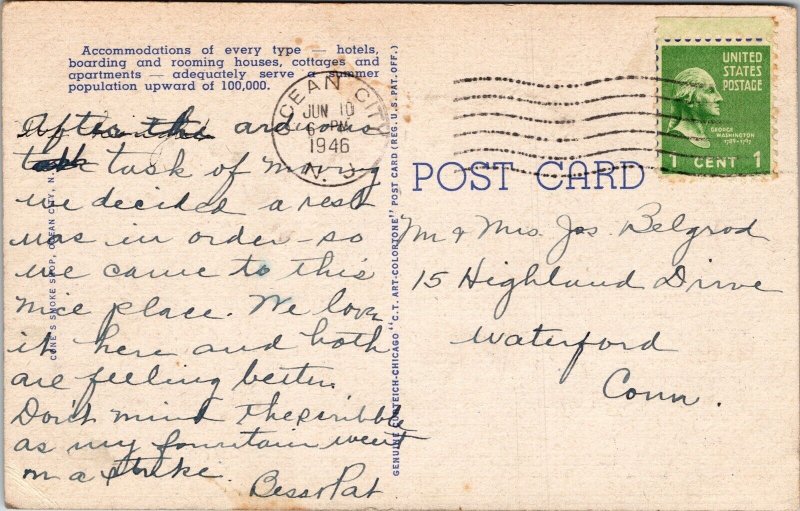 Accommodations of every type — hotels,
boarding and rooming houses, cottages and
apartments — adequately serve a summer
population upward of 100,000.
After the arduous
task task of moving
we decided a rest
was in order - so
we came to this
nice place. We love
it here and both
are feeling better.
Don't mind the scribble
as my fountain went
on a strike.
Bess & Pat
CONE'S SMOKE SHOP, OCEAN CITY, N.
GENUINE CURTEICH-CHICAGO "C.T. ART-COLORTONE" POST CARD (REG. U.S. PAT. OFF.)
OCEAN CITY
JUN 10
6 PM
1946
N. J.
UNITED
STATES
POSTAGE
GEORGE
WASHINGTON
1789-1797
1 CENT 1
POST CARD
Mr & Mrs. Jas. Belgrod
15 Highland Drive
Waterford
Conn.